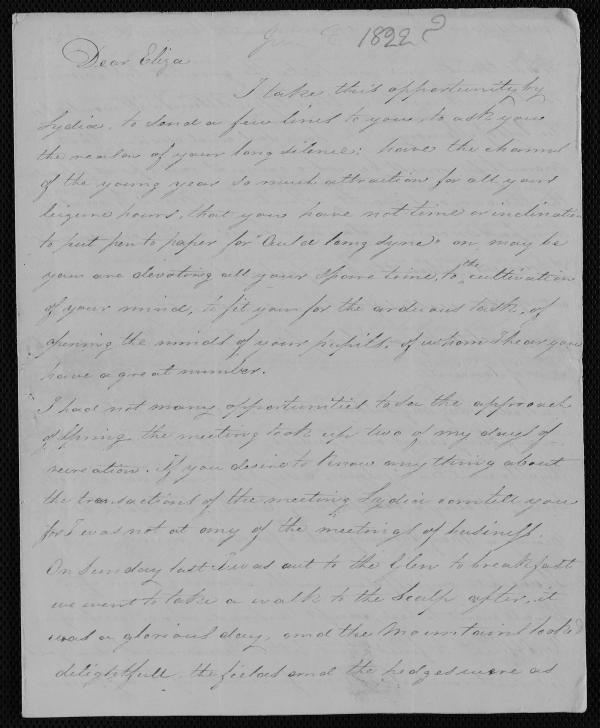 1822?
Dear Eliza
I take this opportunity by
Lydia, to send a few lines to you, to ask you
the reason of your long silence; have the charms
of the young year so much attraction for all your
leigure hours, that you have not time or inclination
to put pen to paper for "Auld lang syne" or may be
you are devoting all your spare time, to the cultivation
of your mind, to fit you for the arduous task, of
opening the minds of your pupils, of whom I hear you
have a great number.
I had not many opportunities to see the approach
of Spring the meeting took up two of my days of
recreation. If you desire to know any thing about
the transactions of the meeting Lydia can tell you
for I was not at any of the meetings of business.
On Sunday last I was out to the Glen to breakfast
we went to take a walk to the Scalp after, it
was a glorious day, and the Mountains look'd
delightfull the fields and the hedges were as